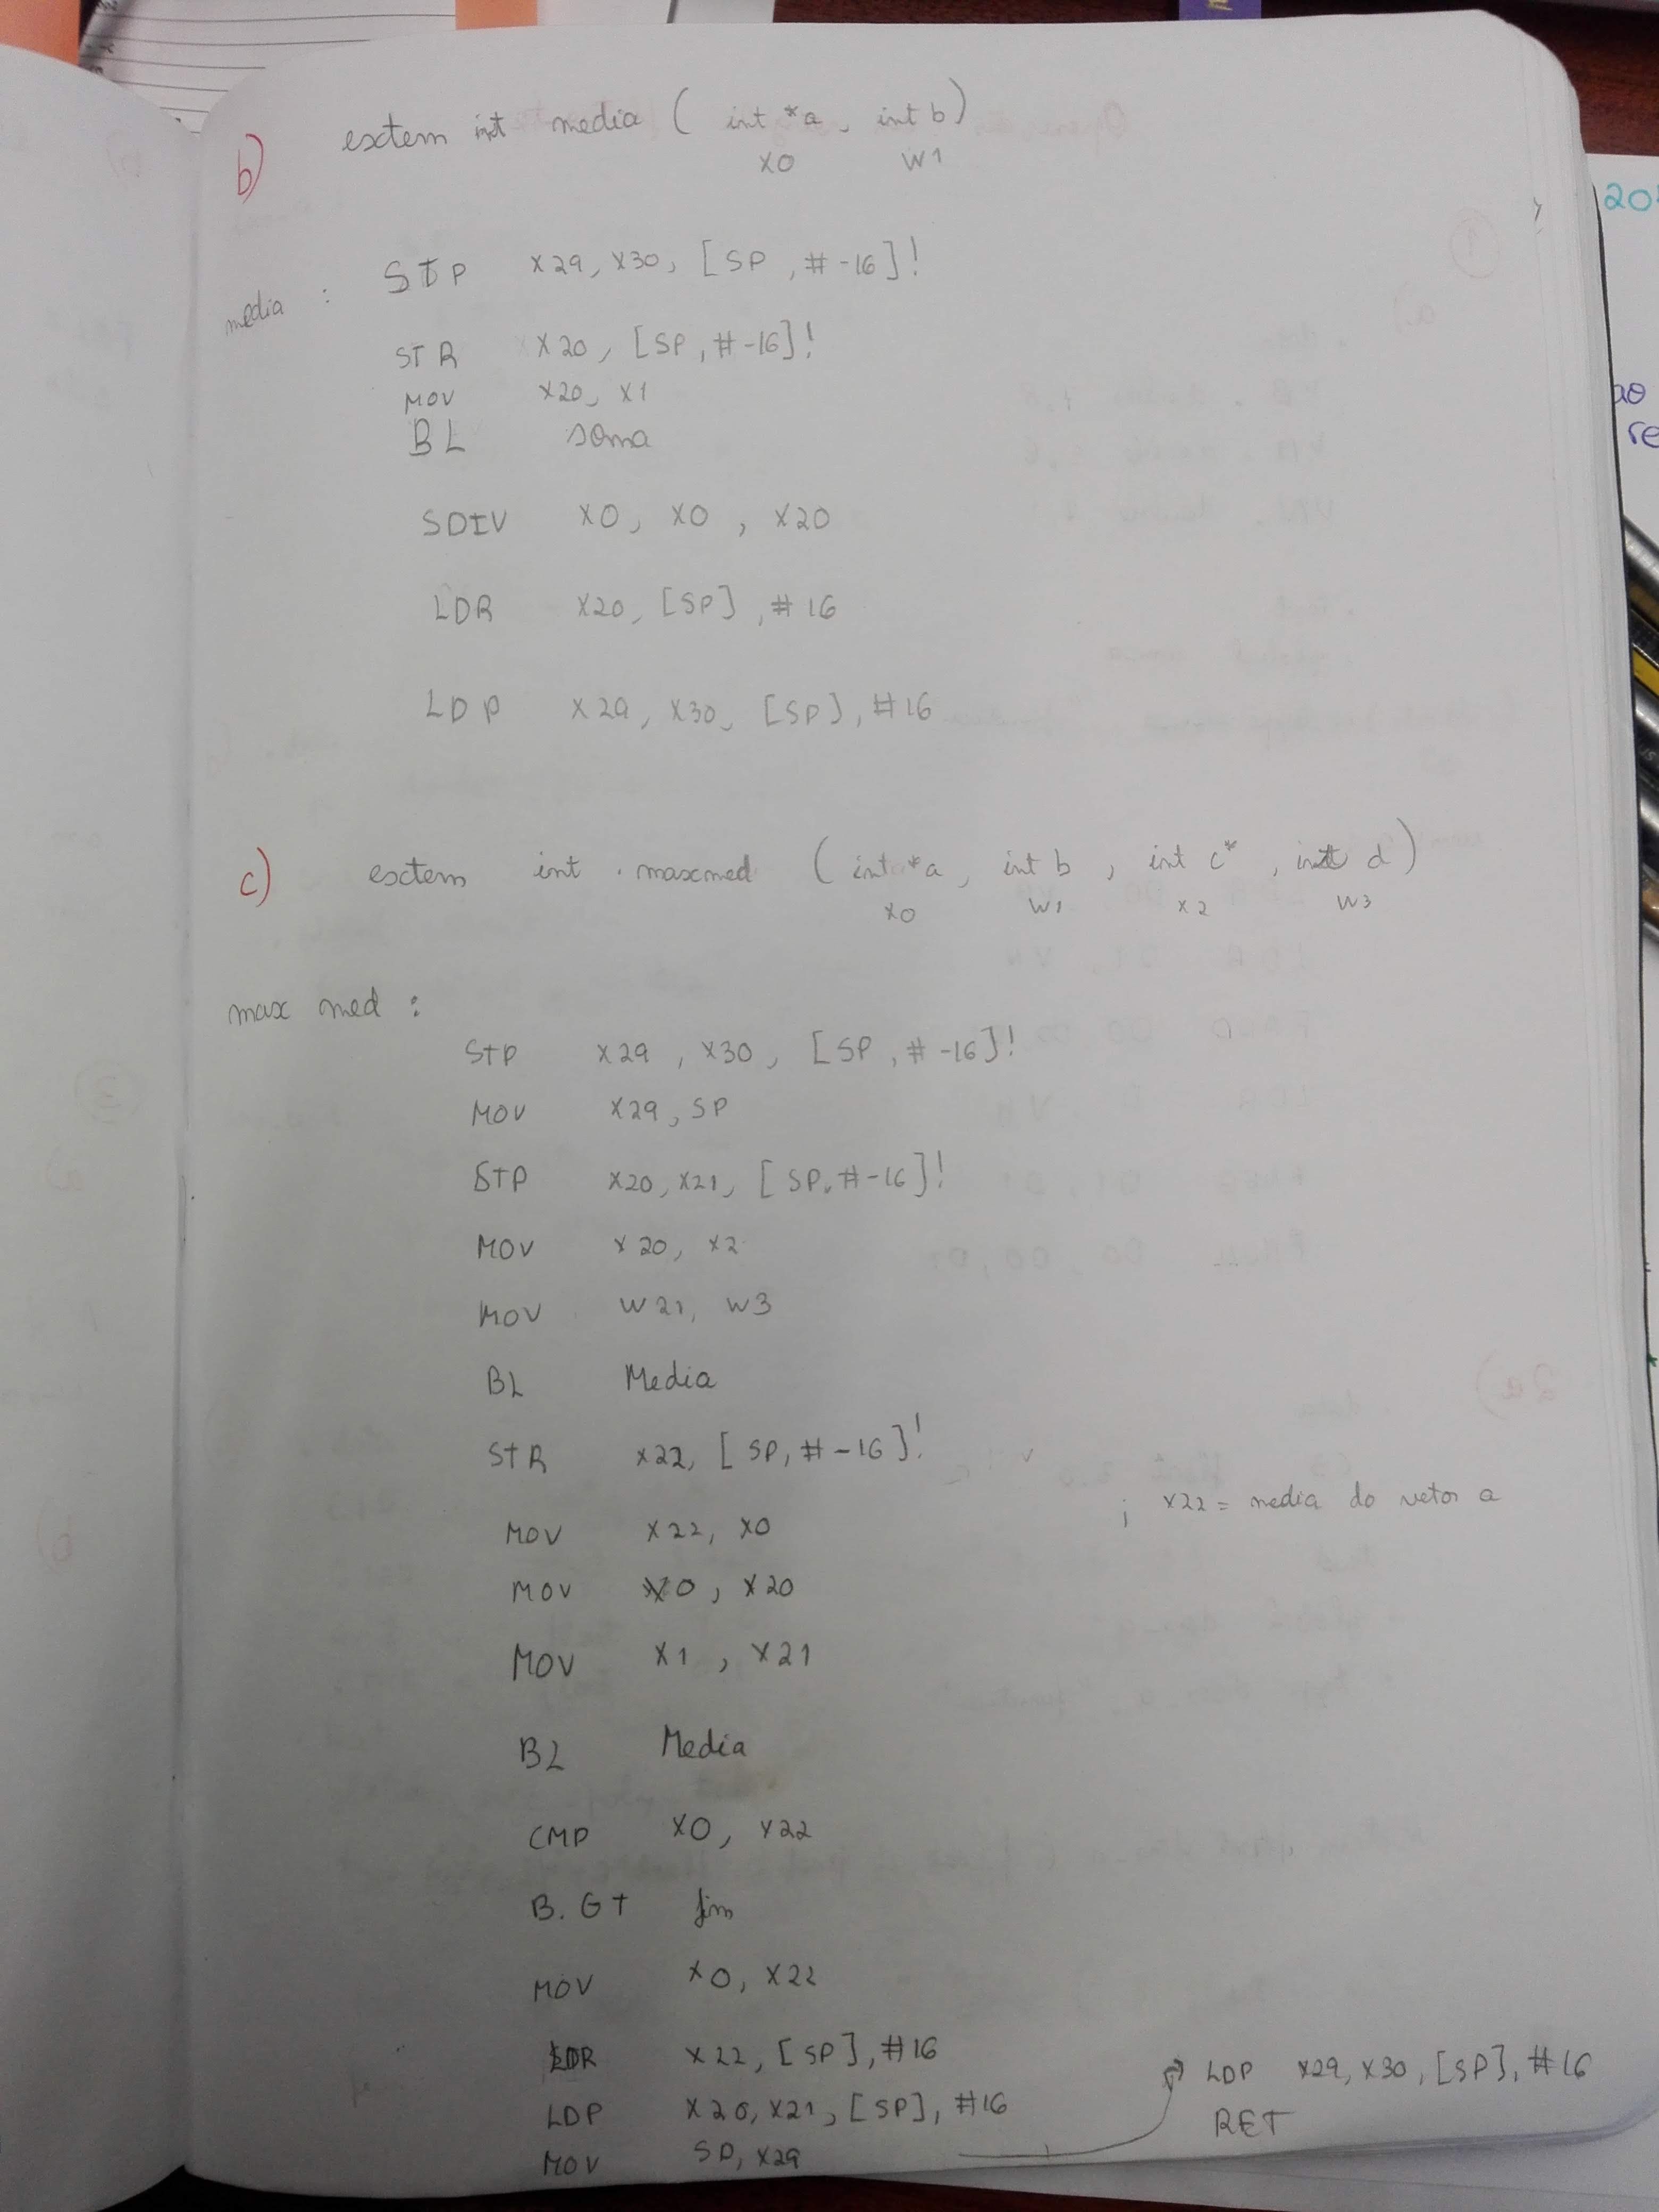 b) extern int media ( int *a, int b)
x0 w1
media : STP x29, x30, [SP, #-16]!
STR x20, [SP, #-16]!
MOV x20, x1
BL soma
SDIV x0, x0, x20
LDR x20, [SP], #16
LDP x29, x30, [SP], #16
c) extern int maxmed (int *a, int b, int c*, int d)
x0 w1 x2 w3
max med :
STP x29, x30, [SP, #-16]!
MOV x29, SP
STP x20, x21, [SP, #-16]!
MOV x20, x2
MOV w21, w3
BL Media
STR x22, [SP, #-16]!
; x22 = media do vetor a
MOV x22, x0
MOV x0, x20
MOV x1, x21
BL Media
CMP x0, x22
B.GT fim
MOV x0, x22
LDR x22, [SP], #16
LDP x20, x21, [SP], #16
MOV SP, x29
LDP x29, x30, [SP], #16
RET
20
ao
re